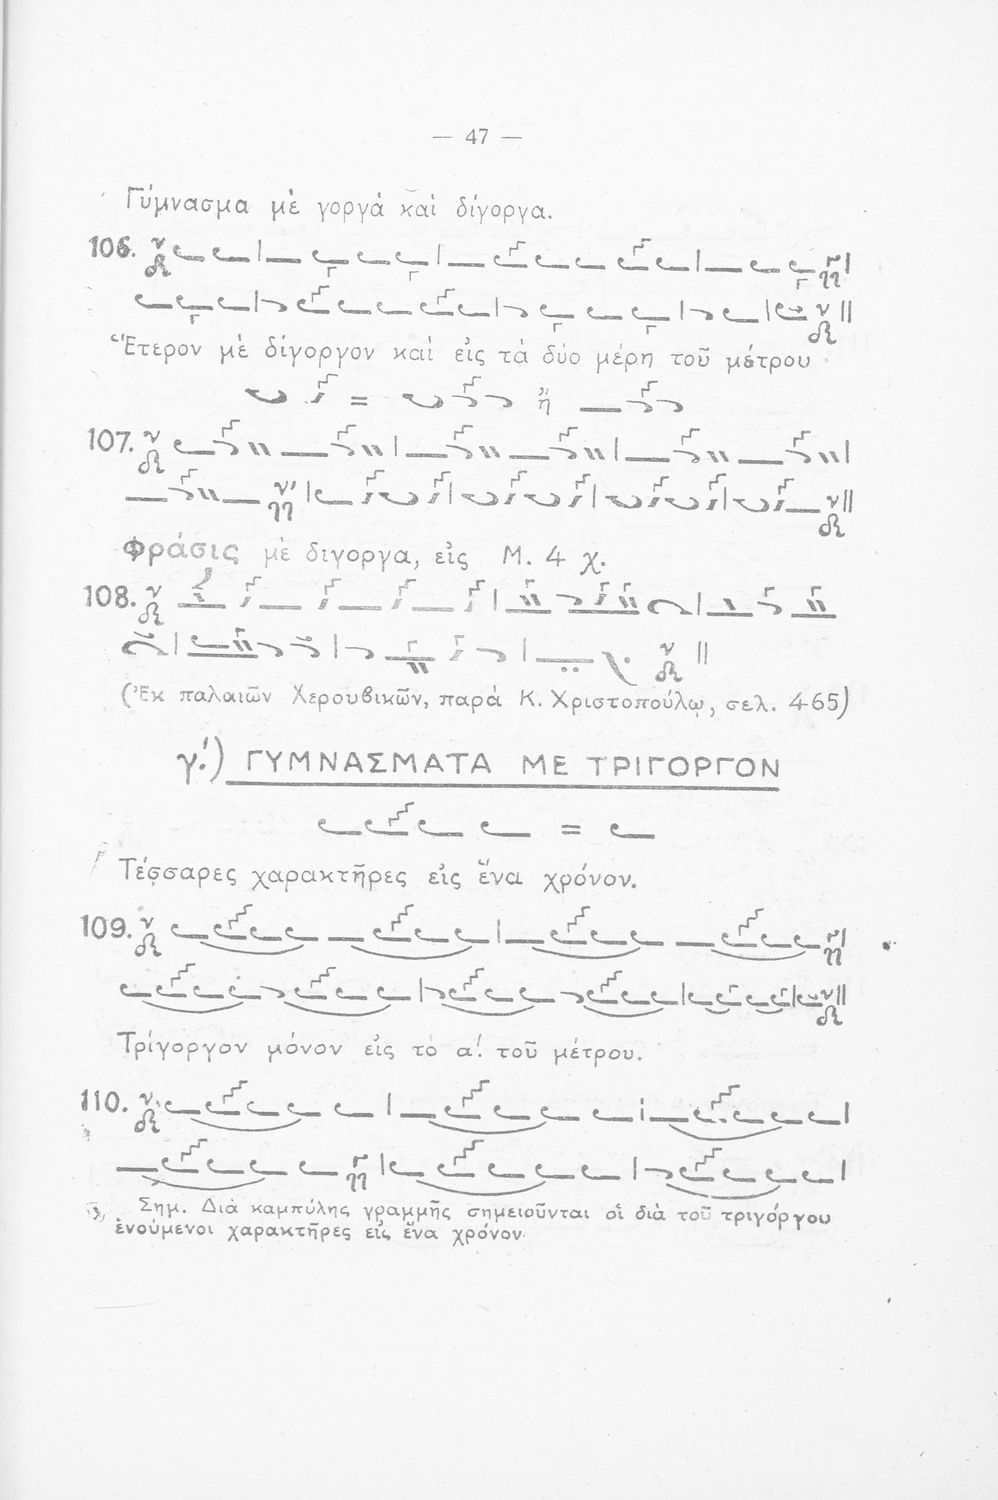 — 47 —
Γύμνασμα μὲ γοργά καὶ δίγοργα.
106.
Ἕτερον μὲ δίγοργον καὶ εἰς τὰ δύο μέρη τοῦ μέτρου
= ἢ
107.
Φράσις μὲ διγοργα, εἰς Μ. 4 χ.
108.
(Ἐκ παλαιῶν Χερουβικῶν, παρὰ Κ. Χριστοπούλῳ, σελ. 465)
γ΄.) ΓΥΜΝΑΣΜΑΤΑ ΜΕ ΤΡΙΓΟΡΓΟΝ
=
Τέσσαρες χαρακτῆρες εἰς ἕνα χρόνον.
109.
Τρίγοργον μόνον εἰς τὸ α΄. τοῦ μέτρου.
110.
Σημ. Διὰ καμπύλης γραμμῆς σημειοῦνται οἱ διὰ τοῦ τριγόργου
ἑνούμενοι χαρακτῆρες εἰς ἕνα χρόνον